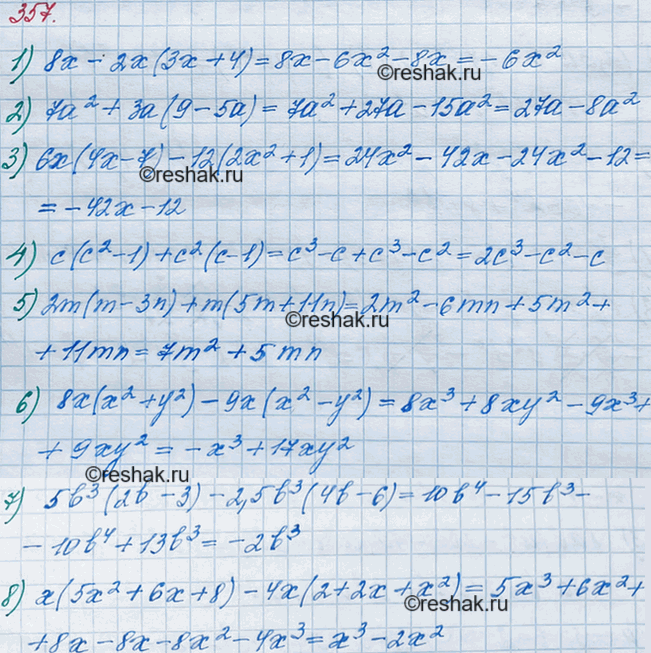 357.
1) 8x - 2x(3x+4) = 8x - 6x² - 8x = -6x²
©reshak.ru
2) 7a² + 3a(9-5a) = 7a² + 27a - 15a² = 27a - 8a²
3) 6x(4x-7) - 12(2x²+1) = 24x² - 42x - 24x² - 12 =
©reshak.ru
= -42x - 12
4) c(c²-1) + c²(c-1) = c³ - c + c³ - c² = 2c³ - c² - c
©reshak.ru
5) 2m(m-3n) + m(5m+11n) = 2m² - 6mn + 5m² +
©reshak.ru
+ 11mn = 7m² + 5mn
6) 8x(x²+y²) - 9x(x²-y²) = 8x³ + 8xy² - 9x³ +
+ 9xy² = -x³ + 17xy²
©reshak.ru
7) 5b³(2b-3) - 2,5b³(4b-6) = 10b⁴ - 15b³ -
- 10b⁴ + 13b³ = -2b³
8) x(5x²+6x+8) - 4x(2+2x+x²) = 5x³ + 6x² +
©reshak.ru
+ 8x - 8x - 8x² - 4x³ = x³ - 2x²